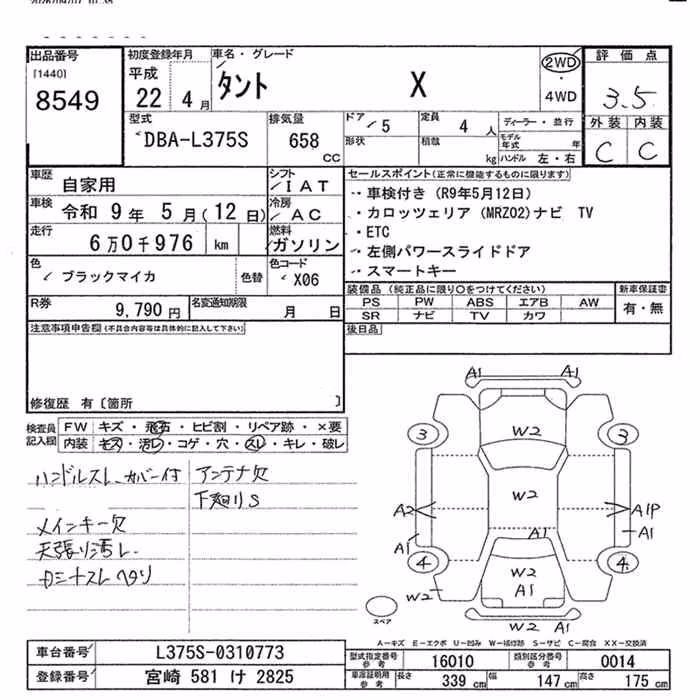 出品番号
[1440]
8549
初度登録年月
平成
22 4 月
車名・グレード
タント X
2WD
・
4WD
評価点
3.5
外装 内装
C C
型式
DBA-L375S
排気量
658
CC
ドア
5
形状
定員
4 人
積載
kg
ディーラー・並行
モデル年式 年
ハンドル 左・右
車歴
自家用
シフト
IAT
車検
令和 9年 5月(12日)
冷房
AC
走行
6万0千976 km
燃料
ガソリン
色
ブラックマイカ
色替
色コード
X06
R券
9,790 円
名変通知期限
月 日
セールスポイント(正常に機能するものに限ります)
・車検付き (R9年5月12日)
・カロッツェリア (MRZ02)ナビ TV
・ETC
・左側パワースライドドア
・スマートキー
装備品(純正品に限り○をつけてください)
PS PW ABS エアB AW
SR ナビ TV カワ
新車保証書
有・無
後日品
注意事項申告欄(不具合内容等は具体的に記入して下さい)
修復歴 有〔箇所 〕
検査員記入欄
FW キズ・飛石・ヒビ割・リペア跡・×要
内装 キズ・汚レ・コゲ・穴・スレ・キレ・破レ
ハンドルスレ カバー付 アンテナ欠
下廻りS
メインキー欠
天張り汚レ
A1 A1
3 3
W2
W2
A2 A1P
A1 A1 A1
4 4
W2
A1
W2
W2 A1
スペア
A−キズ E−エクボ U−凹み W−補修跡 S−サビ C−腐食 XX−交換済
車台番号
L375S-0310773
登録番号
宮崎 581 け 2825
型式指定番号
参考
16010
類別区分番号
参考
0014
車庫証明用
参考
長さ 339 cm 幅 147 cm 高さ 175 cm